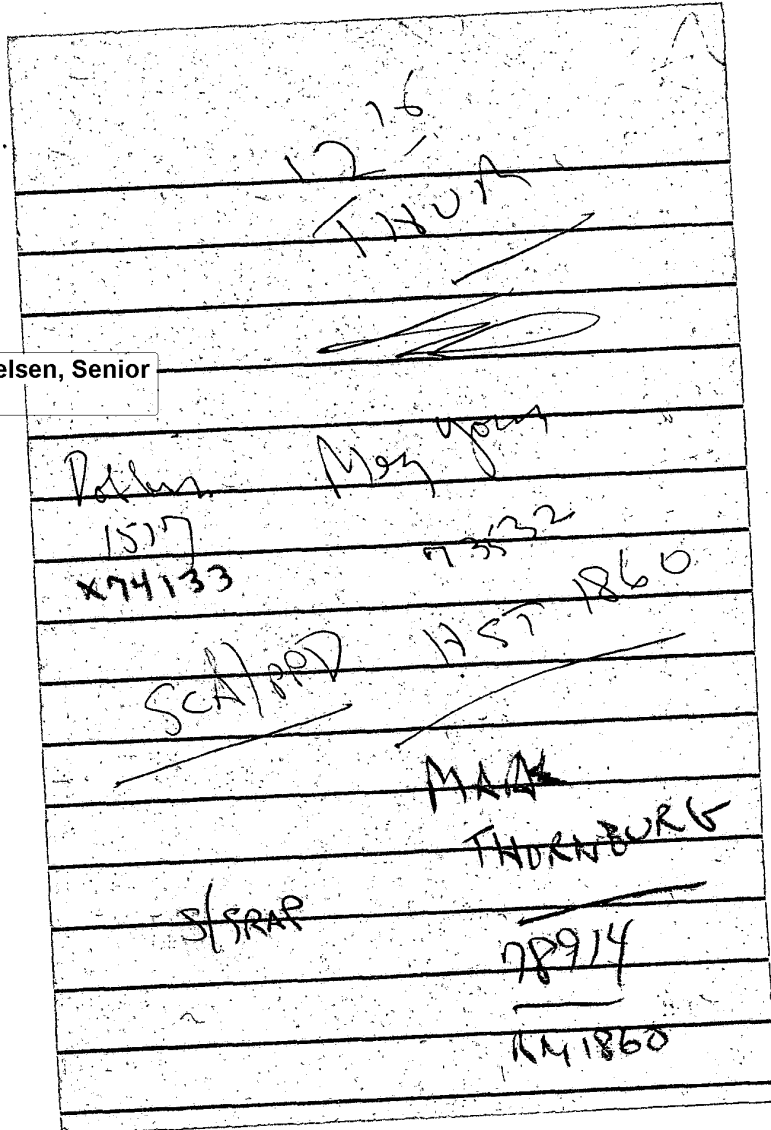 12 16
THUR
elsen, Senior
Meg Young
1517 73532
X74133
SCA/PPD HST 1860
MARK
THORNBURG
S/SRAP
78914
RM 1860